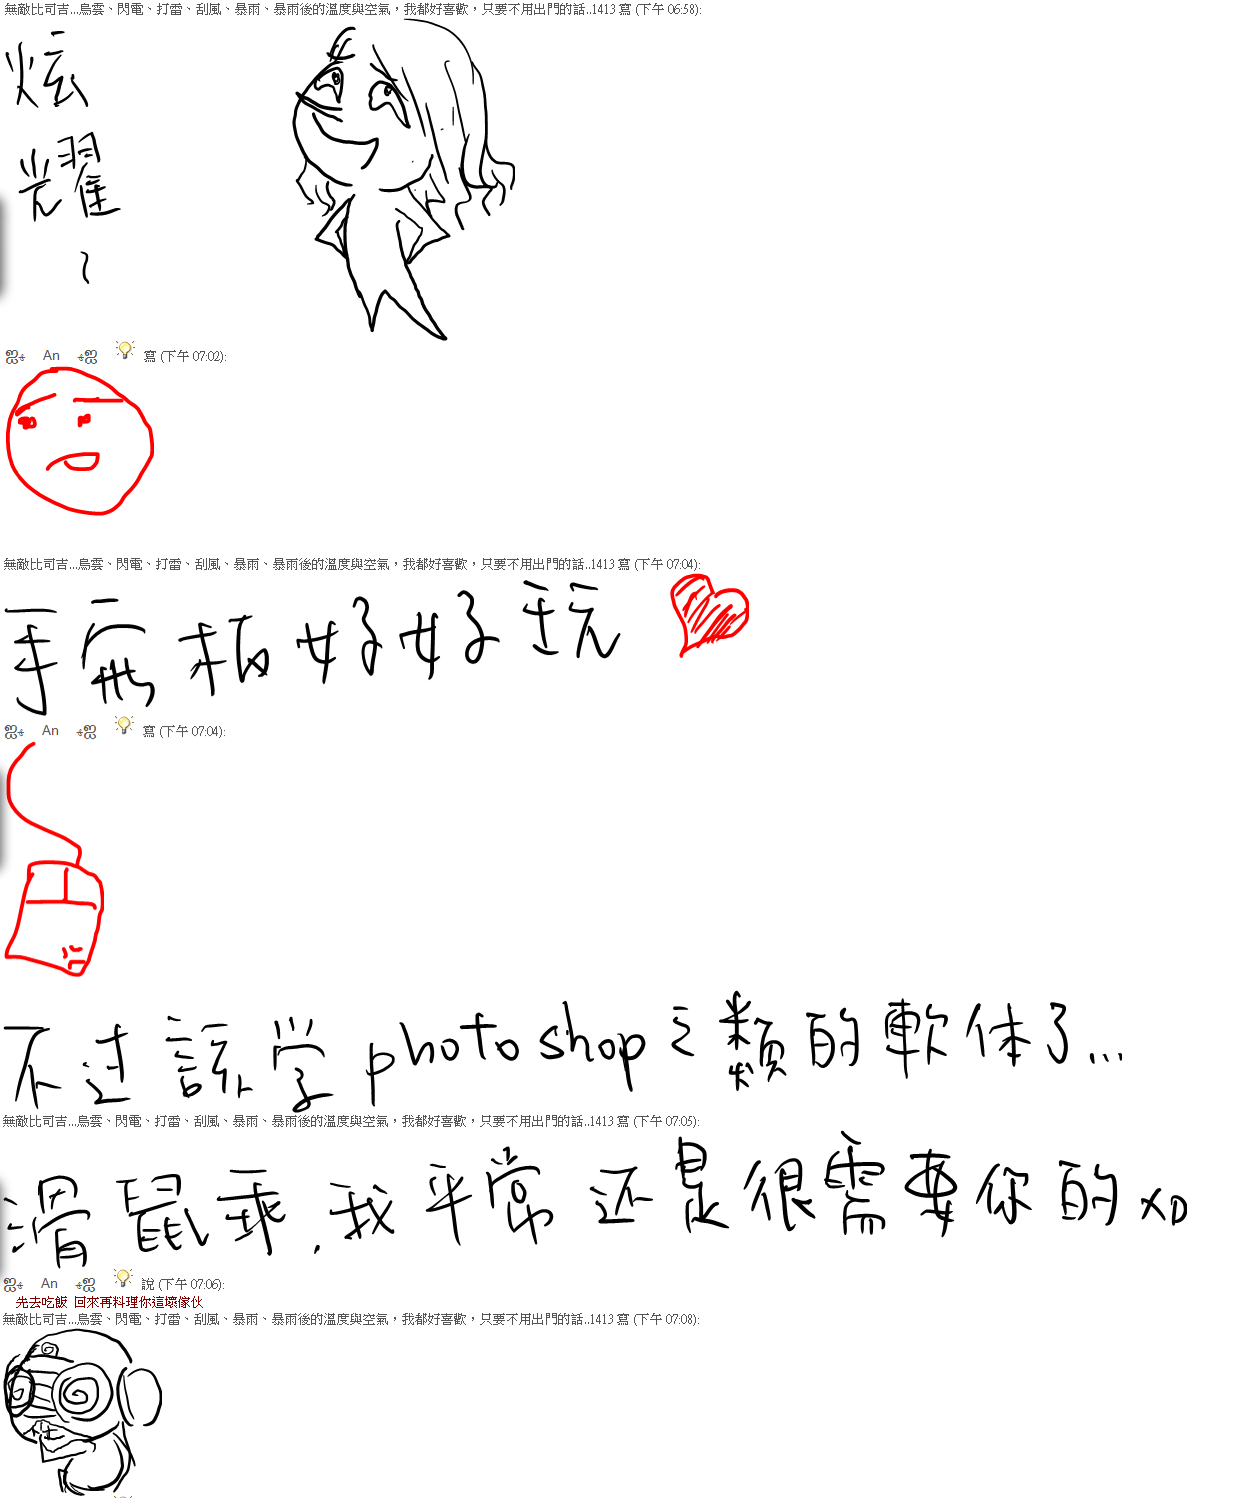 無敵比司吉...烏雲、閃電、打雷、刮風、暴雨、暴雨後的溫度與空氣，我都好喜歡，只要不用出門的話..1413 寫 (下午 06:58):
炫
耀
~
ஐ௳ An ௳ஐ 寫 (下午 07:02):
無敵比司吉...烏雲、閃電、打雷、刮風、暴雨、暴雨後的溫度與空氣，我都好喜歡，只要不用出門的話..1413 寫 (下午 07:04):
手寫板好好玩
ஐ௳ An ௳ஐ 寫 (下午 07:04):
不过該学photoshop之類的軟体了...
無敵比司吉...烏雲、閃電、打雷、刮風、暴雨、暴雨後的溫度與空氣，我都好喜歡，只要不用出門的話..1413 寫 (下午 07:05):
滑鼠乖,我平常还是很需要你的XD
ஐ௳ An ௳ஐ 說 (下午 07:06):
先去吃飯 回來再料理你這壞傢伙
無敵比司吉...烏雲、閃電、打雷、刮風、暴雨、暴雨後的溫度與空氣，我都好喜歡，只要不用出門的話..1413 寫 (下午 07:08):